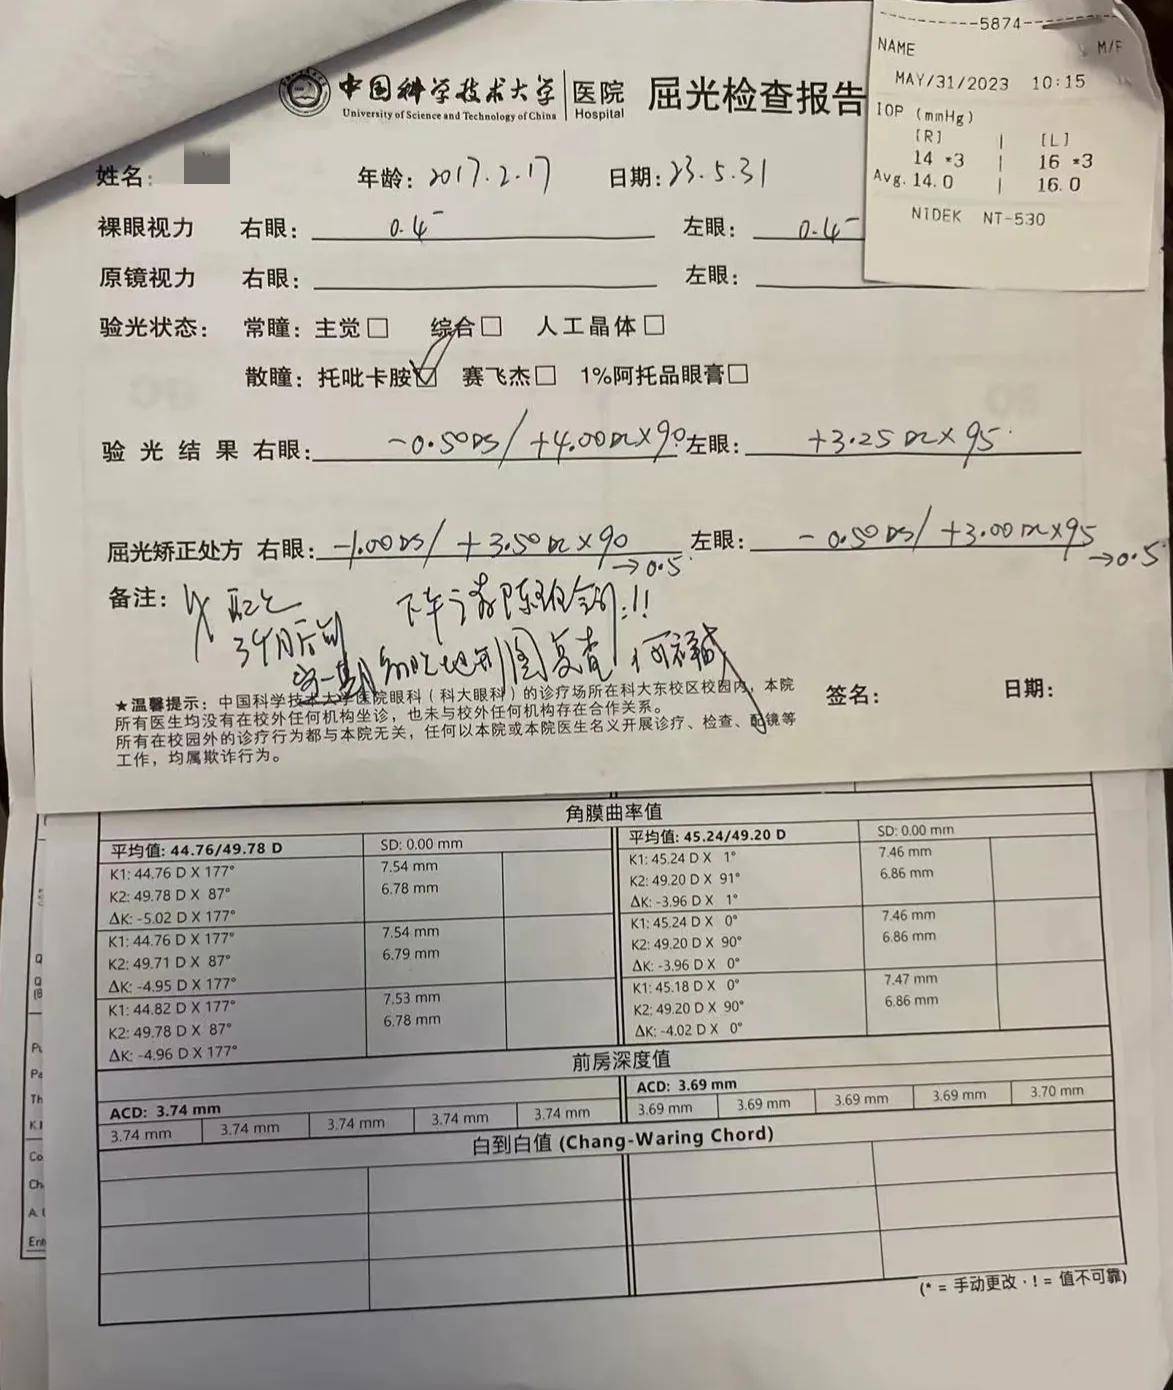 -------5874-------
NAME M/F
MAY/31/2023 10:15
IOP (mmHg)
[R] | [L]
14 *3 | 16 *3
Avg. 14.0 | 16.0
NIDEK NT-530
中国科学技术大学 医院 屈光检查报告
University of Science and Technology of China Hospital
姓名: 年龄: 2017.2.17 日期: 23.5.31
裸眼视力 右眼: 0.4⁻ 左眼: 0.4⁻
原镜视力 右眼: 左眼:
验光状态: 常瞳: 主觉□ 综合□ 人工晶体□
散瞳: 托吡卡胺☑ 赛飞杰□ 1%阿托品眼膏□
验光结果 右眼: -0.50DS/+4.00DC×90 左眼: +3.25DC×95
屈光矫正处方 右眼: -1.00DS/+3.50DC×90 →0.5 左眼: -0.50DS/+3.00DC×95 →0.5
备注:
3个月后
地形图复查
★温馨提示: 中国科学技术大学医院眼科(科大眼科)的诊疗场所在科大东校区校园内,本院
所有医生均没有在校外任何机构坐诊,也未与校外任何机构存在合作关系。
所有在校园外的诊疗行为都与本院无关,任何以本院或本院医生名义开展诊疗、检查、配镜等
工作,均属欺诈行为。
签名: 日期:
角膜曲率值
平均值: 44.76/49.78 D SD: 0.00 mm 平均值: 45.24/49.20 D SD: 0.00 mm
K1: 44.76 D X 177° 7.54 mm K1: 45.24 D X 1° 7.46 mm
K2: 49.78 D X 87° 6.78 mm K2: 49.20 D X 91° 6.86 mm
ΔK: -5.02 D X 177° ΔK: -3.96 D X 1°
K1: 44.76 D X 177° 7.54 mm K1: 45.24 D X 0° 7.46 mm
K2: 49.71 D X 87° 6.79 mm K2: 49.20 D X 90° 6.86 mm
ΔK: -4.95 D X 177° ΔK: -3.96 D X 0°
K1: 44.82 D X 177° 7.53 mm K1: 45.18 D X 0° 7.47 mm
K2: 49.78 D X 87° 6.78 mm K2: 49.20 D X 90° 6.86 mm
ΔK: -4.96 D X 177° ΔK: -4.02 D X 0°
前房深度值
ACD: 3.74 mm ACD: 3.69 mm
3.74 mm 3.74 mm 3.74 mm 3.74 mm 3.74 mm 3.69 mm 3.69 mm 3.69 mm 3.69 mm 3.70 mm
白到白值 (Chang-Waring Chord)
(* = 手动更改 · ! = 值不可靠)